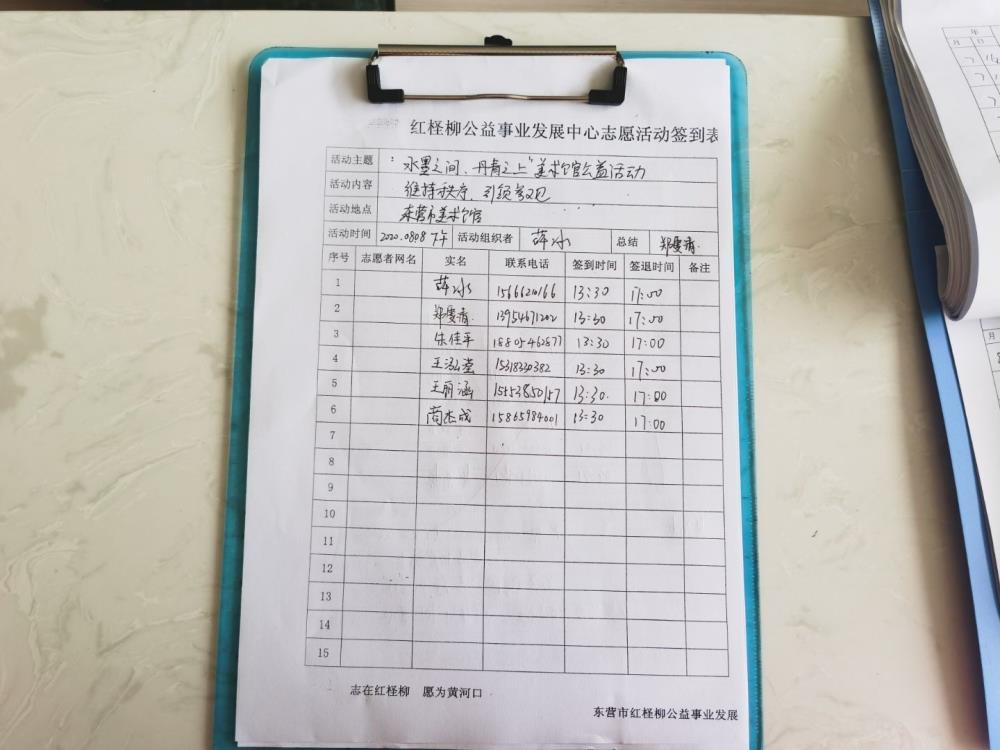 红柽柳公益事业发展中心志愿活动签到表
活动主题 "水墨之间、丹青之上"美术馆公益活动
活动内容 维持秩序、引领
活动地点 东营市美术馆
活动时间 2020.0808下午 活动组织者 薛冰 总结
序号 志愿者网名 实名 联系电话 签到时间 签退时间 备注
1 薛冰 13:30 17:00
2 13954671202 13:30 17:00
3 朱佳平 18805462877 13:30 17:00
4 王泓莹 15318230382 13:30 17:00
5 王丽涵 15553850157 13:30. 17:00
6 尚杰成 15865984001 13:30 17:00
7
8
9
10
11
12
13
14
15
志在红柽柳 愿为黄河口
东营市红柽柳公益事业发展